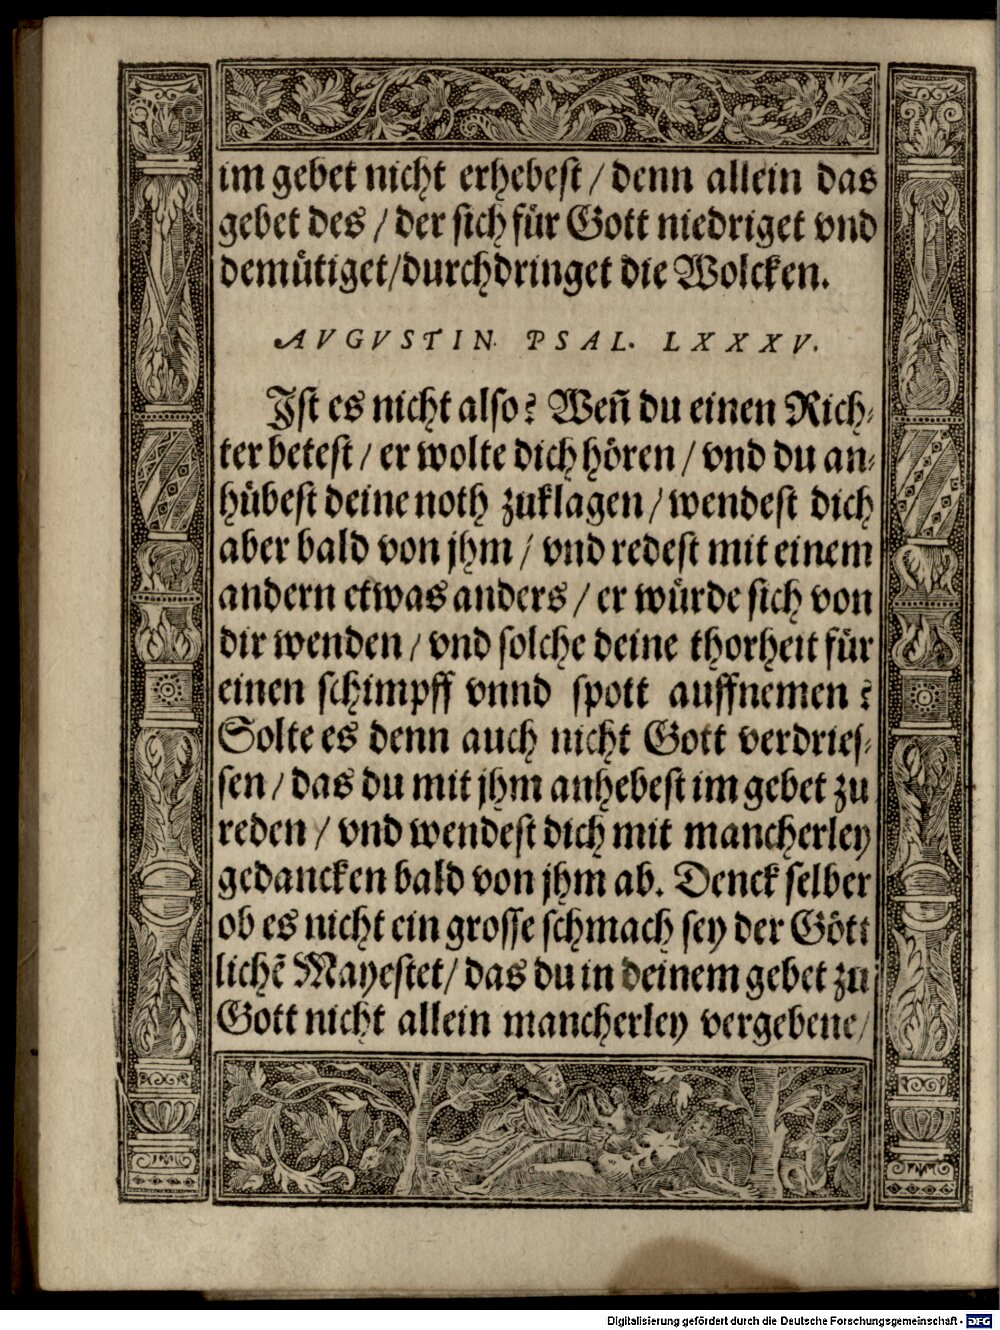 im gebet nicht erhebest / denn allein das
gebet des / der sich für Gott niedriget vnd
demütiget/durchdringet die Wolcken.
AVGVSTIN. PSAL. LXXXV.
Ist es nicht also? Wen̄ du einen Rich⸗
ter betest / er wolte dich hören / vnd du an⸗
hübest deine noth zuklagen / wendest dich
aber bald von jhm / vnd redest mit einem
andern etwas anders / er würde sich von
dir wenden / vnd solche deine thorheit für
einen schimpff vnnd spott auffnemen?
Solte es denn auch nicht Gott verdries⸗
sen / das du mit jhm anhebest im gebet zu
reden / vnd wendest dich mit mancherley
gedancken bald von jhm ab. Denck selber
ob es nicht ein grosse schmach sey der Gött
lichē Mayestet/ das du in deinem gebet zu
Gott nicht allein mancherley vergebene/
Digitalisierung gefördert durch die Deutsche Forschungsgemeinschaft - DFG